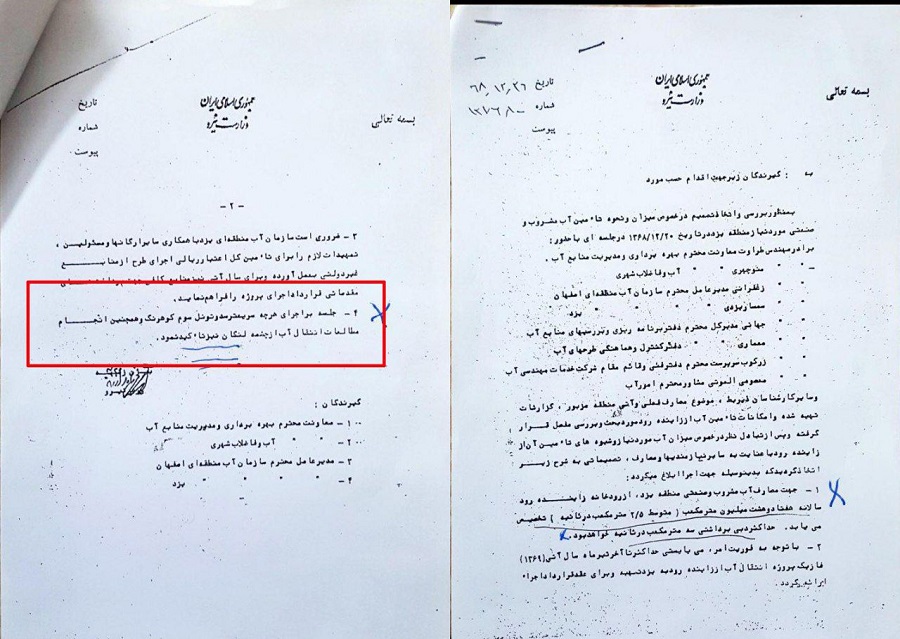 بسمه تعالی
جمهوری اسلامی ایران
وزارت نیرو
تاریخ ۶۸،۱۲،۲۶
شماره
پیوست
به : گیرندگان زیر جهت اقدام حسب مورد
بمنظور بررسی و اتخاذ تصمیم در خصوص میزان و نحوه تاٴمین آب مشروب و
صنعتی مورد نیاز منطقه یزد در تاریخ ۱۳۶۸/۱۲/۲۰ در جلسه ای با حضور :
برادر مهندس طراوت معاونت محترم بهره برداری و مدیریت منابع آب .
" " منوچهری " " آب و فاضلاب شهری
" " زعفرانی مدیرعامل محترم سازمان آب منطقه‌ای اصفهان
" " " " " " یزد
" " جهانی مدیرکل محترم دفتر برنامه ریزی و بررسیهای منابع آب
" " معماری " " دفتر کنترل و هماهنگی طرحهای آب
" " زرکوب سرپرست محترم دفتر فنی و قائم مقام شرکت خدمات مهندسی آب
" " معصومی الموتی مشاور محترم امور آب
و سایر کارشناسان ذیربط ، موضوع مصارف فعلی و آتی منطقه مزبور ، گزارشات
تهیه شده و امکانات تاٴمین آب از زاینده رود مورد بحث و بررسی مفصل قرار
گرفته و پس از تبادل نظر در خصوص میزان آب مورد نیاز و شیوه های تاٴمین آن از
زاینده رود با عنایت به سایر نیازمندیها و مصارف ، تصمیماتی به شرح زیر
اتخاذ گردید که بدینوسیله جهت اجرا ابلاغ میگردد :
۱ - جهت مصارف آب مشروب و صنعتی منطقه یزد ، از رودخانه زاینده رود
سالانه هفتاد و هشت میلیون مترمکعب ( متوسط ۲/۵ مترمکعب در ثانیه ) تخصیص
می یابد . حداکثر دبی برداشتی سه مترمکعب در ثانیه خواهد بود .
۲ - با توجه به فوریت امر ، می بایستی حداکثر تا آخر تیر ماه سال آتی (۱۳۶۹)
فاز یک پروژه انتقال آب از زاینده رود به یزد تهیه و برای عقد قرارداد اجرا
ارائه گردد .
بسمه تعالی
جمهوری اسلامی ایران
وزارت نیرو
تاریخ
شماره
پیوست
- ۲ -
۳ - ضروری است سازمان آب منطقه‌ای یزد با همکاری سایر ارگانها و مسئولین ،
تمهیدات لازم را برای تاٴمین کل اعتبار ریالی اجرای طرح از منابع
غیردولتی بعمل آورده و برای سال آتی نیز منابع
مقدماتی قرارداد اجرای پروژه را فراهم نماید .
۴ - جلسه بر اجرای هرچه سریعتر سد و تونل سوم کوهرنگ و همچنین انجام
مطالعات انتقال آب از چشمه لنگان نیز تاٴکید نمود .
گیرندگان :
۱۰۰ - معاونت محترم بهره برداری و مدیریت منابع آب
۲۰۰ - " " آب و فاضلاب شهری
۳ - مدیرعامل محترم سازمان آب منطقه‌ای اصفهان
۴ - " " " " " یزد